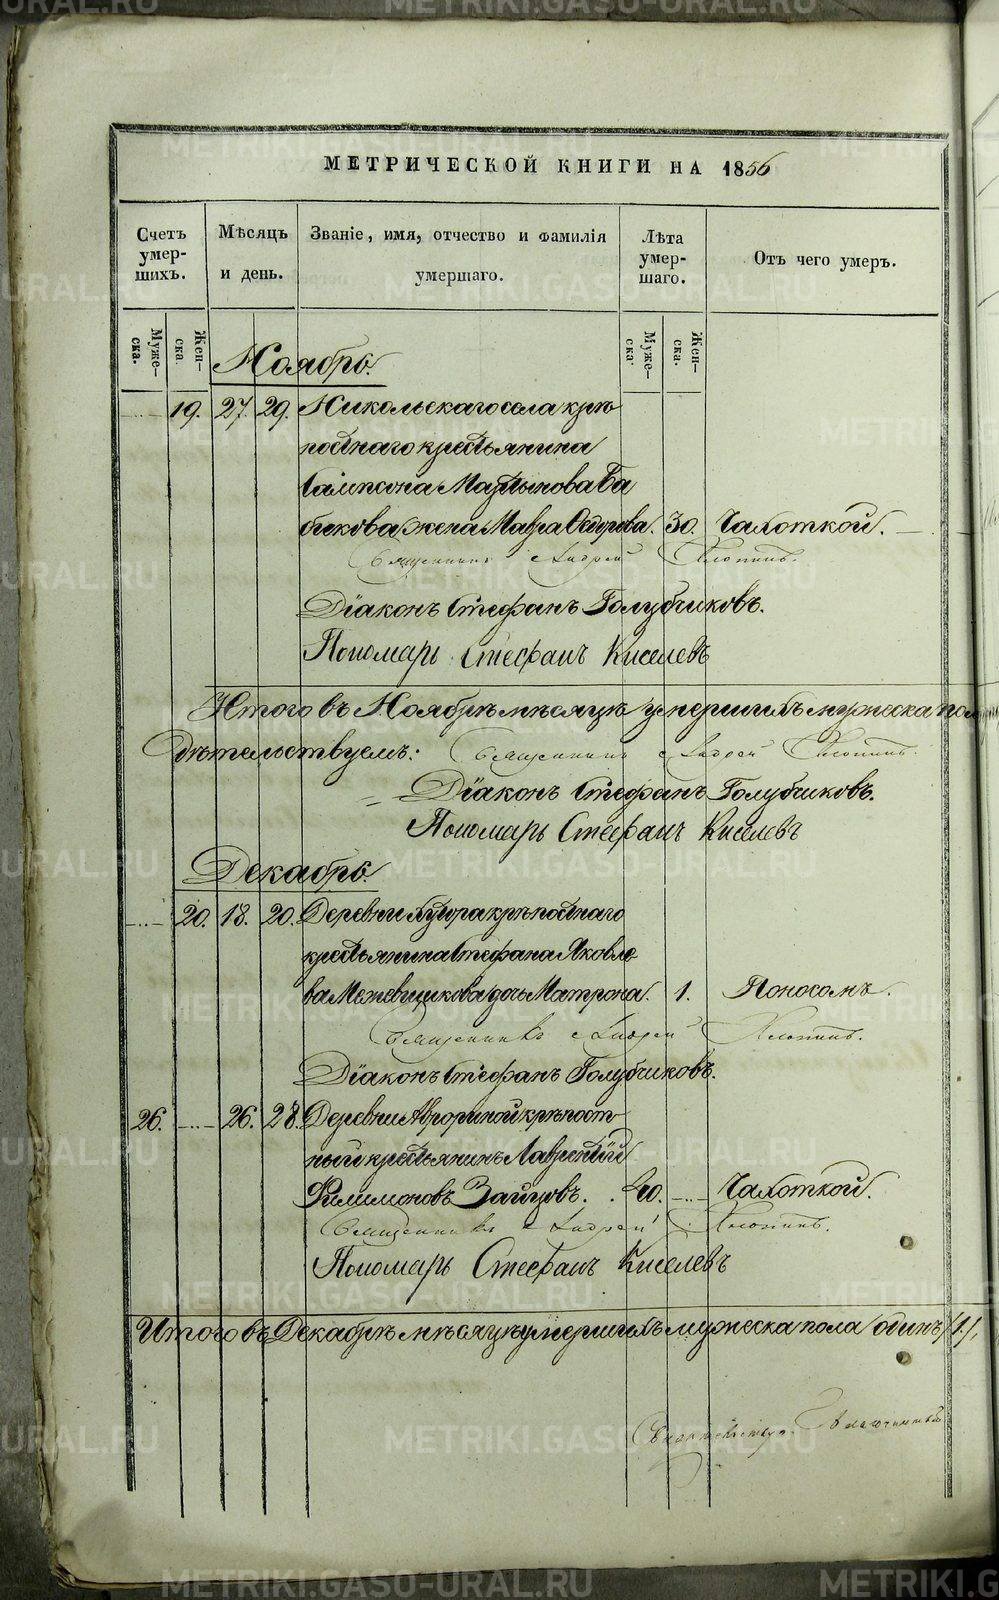 МЕТРИЧЕСКОЙ КНИГИ НА 1856
Счетъ умер-шихъ.
Мѣсяцъ и день.
Званіе, имя, отчество и фамилія умершаго.
Лѣта умер-шаго.
Отъ чего умеръ.
Муже-ска.
Жен-ска
Муже-ска.
Жен-ска.
Ноябрь.
19. 27. 29. Никольскаго села крѣ
постнаго крестьянина
Сампсона Мартынова Ба
бикова жена Мавра Ѳедорова. 30. Чахоткой.
Священникъ Андрей
Діаконъ Стефанъ Голубчиковъ.
Пономарь Стефанъ Киселевъ
Итого въ Ноябрѣ мѣсяцѣ умершихъ мужеска пол
дѣтельствуемъ: Священникъ Андрей
Діаконъ Стефанъ Голубчиковъ.
Пономарь Стефанъ Киселевъ
Декабрь.
20. 18. 20. Деревни крѣпостнаго
крестьянина Стефана Яковле
ва Межевщикова дочь Матрона. 1. Поносомъ.
Священникъ Андрей
Діаконъ Стефанъ Голубчиковъ.
26. 26. 28. Деревни Аврориной крѣпост
ный крестьянинъ Лаврентій
Филимоновъ Зайцовъ. 40. Чахоткой.
Священникъ Андрей
Пономарь Стефанъ Киселевъ
Итого въ Декабрѣ мѣсяцѣ умершихъ мужеска пола одинъ /1/,
METRIKI.GASO-URAL.RU